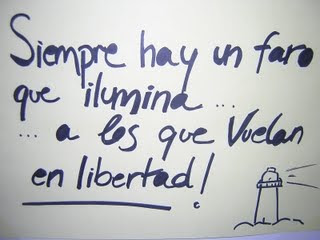 Siempre hay un faro
que ilumina ...
... a los que Vuelan
en libertad!